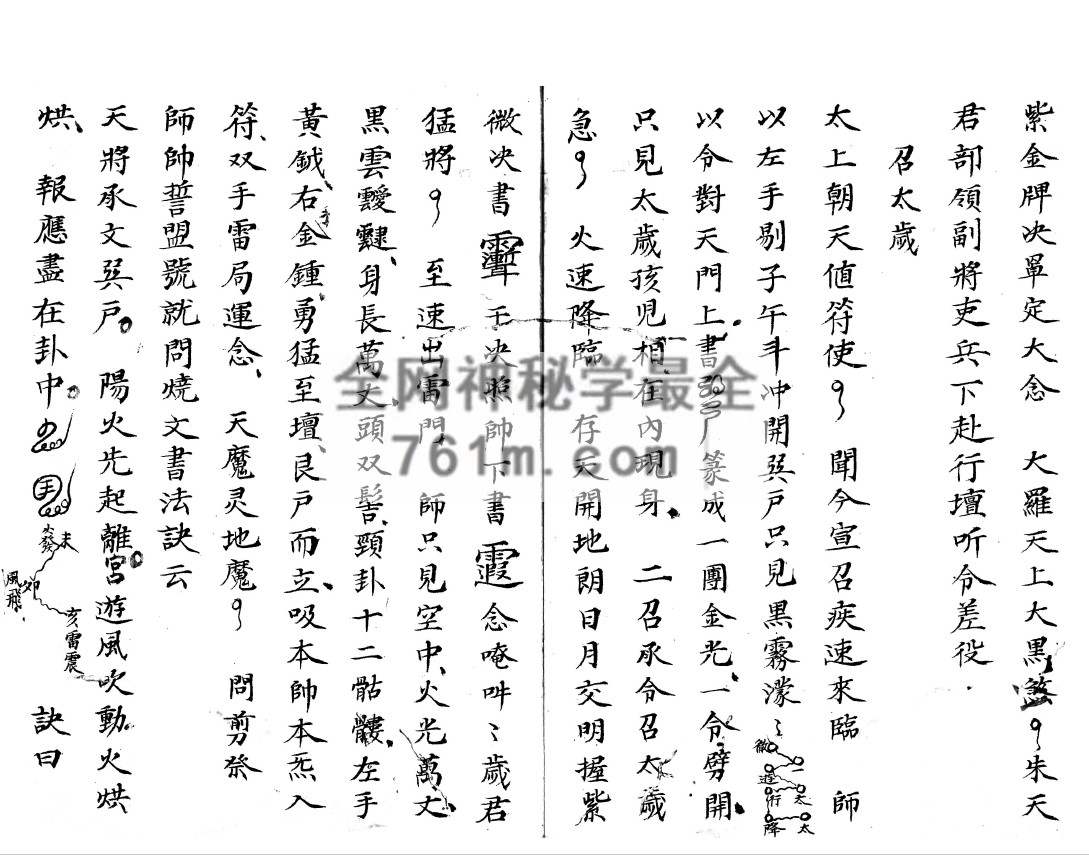 紫金牌决罩定大念　大羅天上大黑煞〻朱天
君部領副將吏兵下赴行壇听令差役
召太歲
太上朝天値符使〻聞今宣召疾速來臨　師
以左手剔子午斗冲開巽戸只見黑霧濛〻
以令對天門上書篆成一團金光、一令劈開
只見太歲孩児相在內現身　二召承令召太歲
急〻　火速降臨　存天開地朗日月交明握紫
微决書　玉决照帥下書　念唵吽〻歲君
猛將〻　至速出雷門　師只見空中、火光萬丈、
黑雲靉靆、身長萬丈頭双髻、頸卦十二骷髏、左手
黃鉞右手金鍾、勇猛至壇、艮戸而立、吸本帥本炁入
符、双手雷局運念、　天魔灵地魔〻　問剪祭
師帥誓盟號就問燒文書法訣云
天將承文巽戸。陽火先起離宮。遊風吹動。火烘
烘、　報應盡在卦中。　訣曰
微
遊
行
降
太
太
未
火發
卯
風飛
亥雷震
全网神秘学最全
761m.com